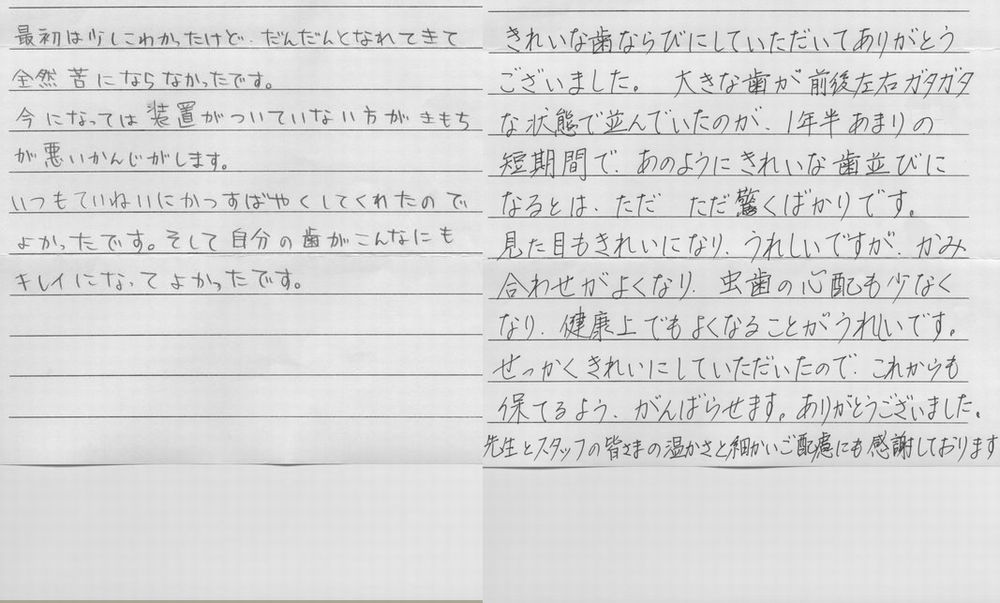 最初は少しこわかったけど、だんだんとなれてきて
全然苦にならなかったです。
今になっては装置がついていない方がきもち
が悪いかんじがします。
いつもていねいにかつすばやくしてくれたので
よかったです。そして自分の歯がこんなにも
キレイになってよかったです。
きれいな歯ならびにしていただいてありがとう
ございました。 大きな歯が前後左右ガタガタ
な状態で並んでいたのが、1年半あまりの
短期間で、あのようにきれいな歯並びに
なるとは、ただ ただ驚くばかりです。
見た目もきれいになり、うれしいですが、かみ
合わせがよくなり、虫歯の心配も少なく
なり、健康上でもよくなることがうれしいです。
せっかくきれいにしていただいたので、これからも
保てるよう、がんばらせます。ありがとうございました。
先生とスタッフの皆さまの温かさと細かいご配慮にも感謝しております